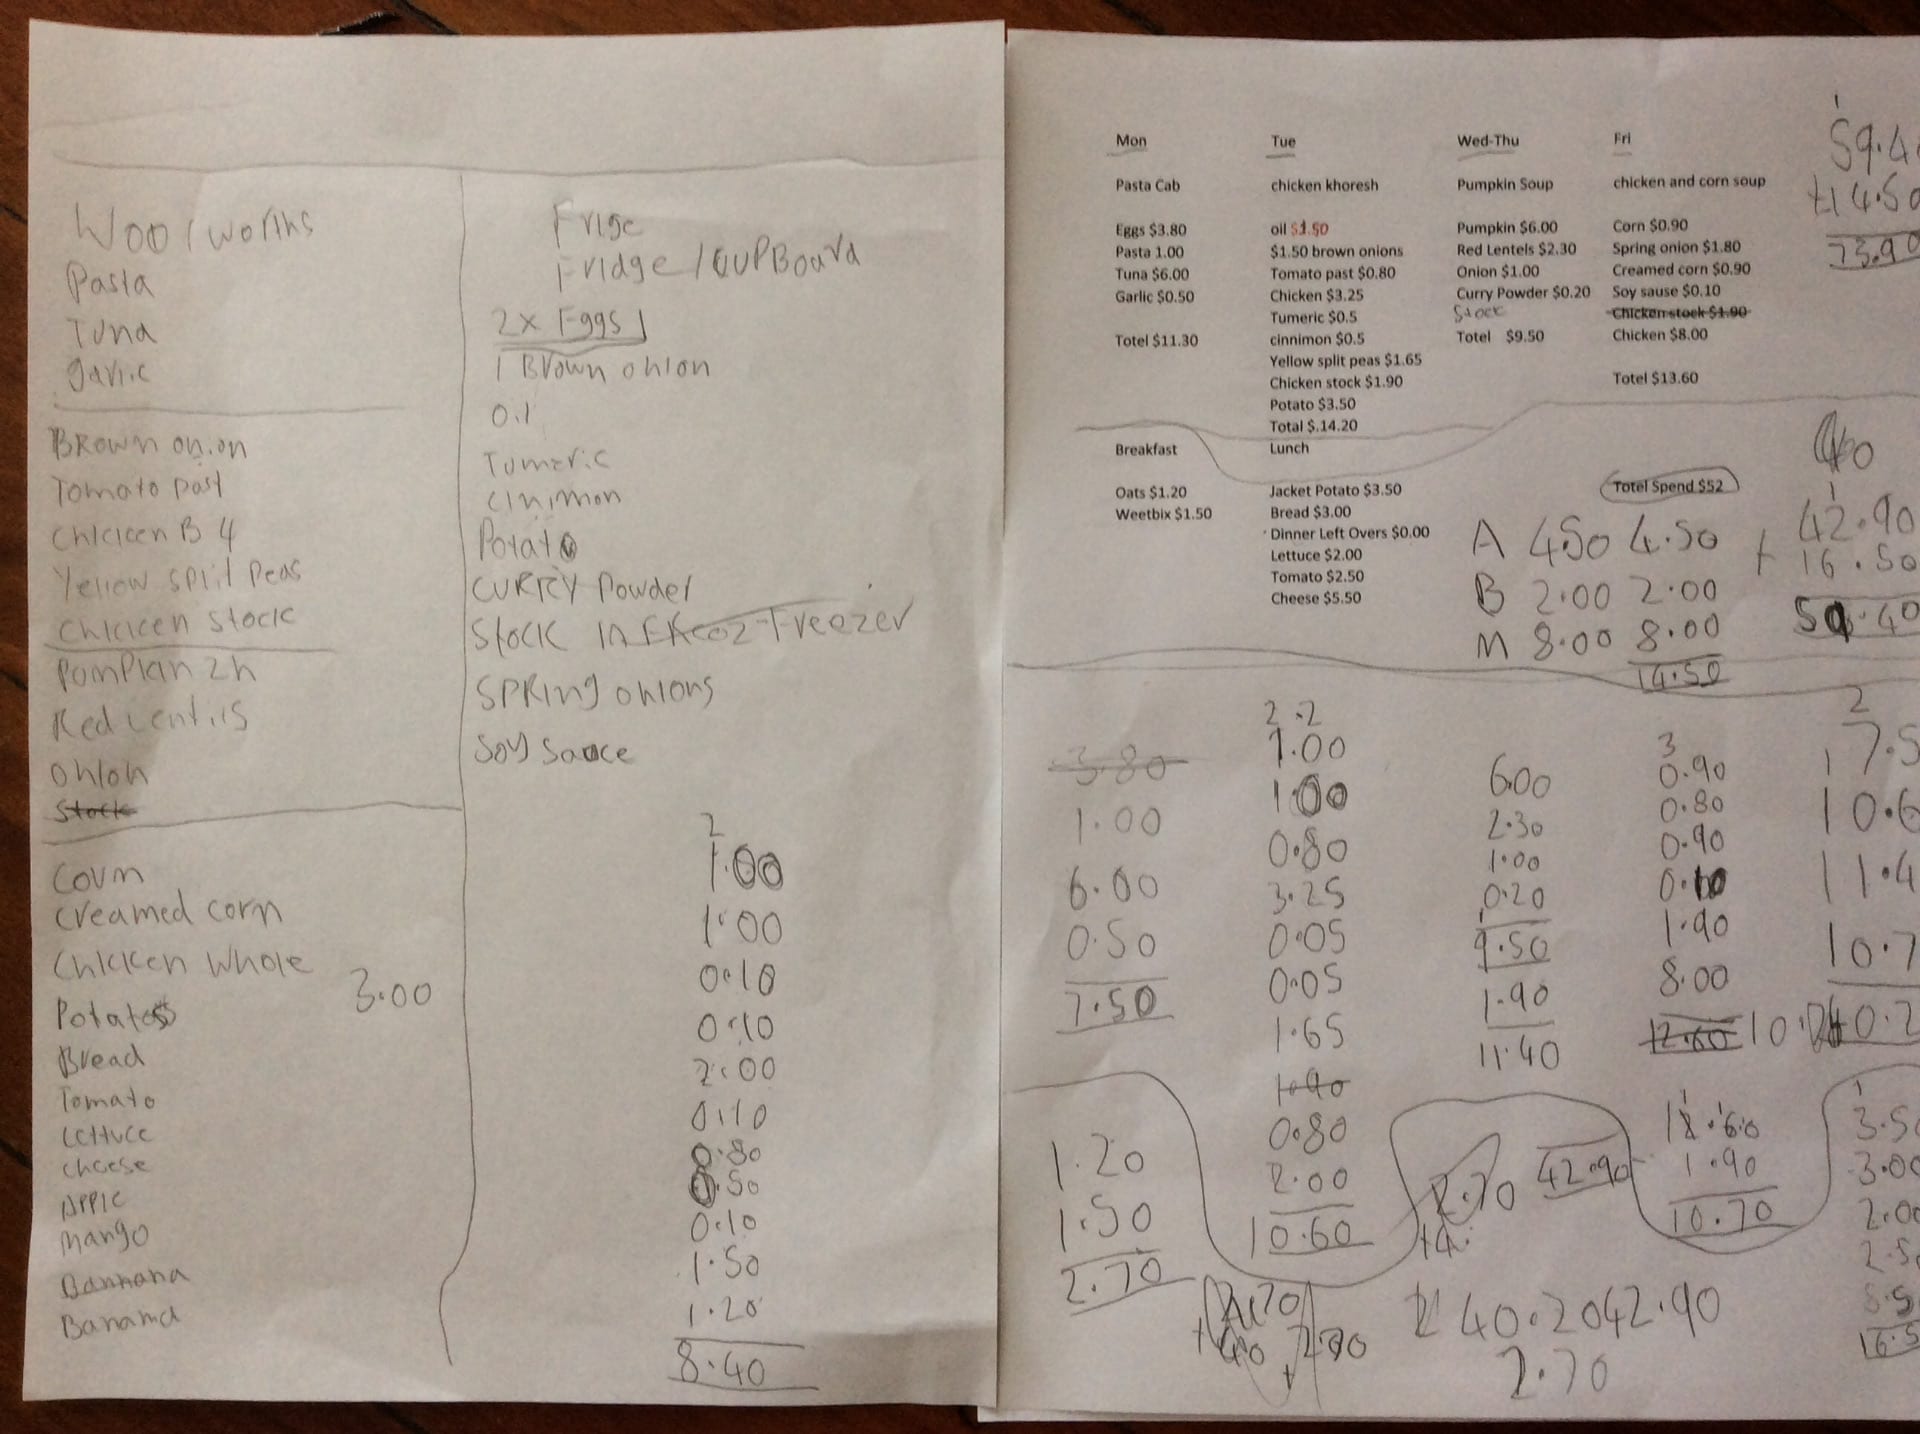 Woolworths
Pasta
Tuna
garlic
Brown onion
Tomato past
Chicken B 4
Yellow split Peas
Chicken stock
Red Lentils
onion
Stock
Corn
Creamed corn
Chicken Whole
3.00
Potatos
Bread
Tomato
Lettuce
cheese
Apple
mango
Bannana
Banana
Frige
Fridge/CUPBoard
2x Eggs
1 Brown onion
Tumeric
Cinimon
Potato
CURRY Powder
Stock in Freezer
SPRing onions
Soy Sauce
2
1.00
1.00
0.10
0.10
2.00
0.10
0.80
0.50
0.10
1.50
1.20
8.40
Mon
Pasta Cab
Eggs $3.80
Pasta 1.00
Tuna $6.00
Garlic $0.50
Totel $11.30
Tue
chicken khoresh
oil $1.50
$1.50 brown onions
Tomato past $0.80
Chicken $3.25
Tumeric $0.5
cinnimon $0.5
Yellow split peas $1.65
Chicken stock $1.90
Potato $3.50
Total $.14.20
Wed-Thu
Pumpkin Soup
Pumpkin $6.00
Red Lentels $2.30
Onion $1.00
Curry Powder $0.20
Stock
Totel $9.50
Fri
chicken and corn soup
Corn $0.90
Spring onion $1.80
Creamed corn $0.90
Soy sause $0.10
Chicken stock $1.90
Chicken $8.00
Totel $13.60
1
59.4
+14.50
73.90
Breakfast
Oats $1.20
Weetbix $1.50
Lunch
Jacket Potato $3.50
Bread $3.00
Dinner Left Overs $0.00
Lettuce $2.00
Tomato $2.50
Cheese $5.50
Totel Spend $52
A 4.50 4.50
B 2.00 2.00
M 8.00 8.00
14.50
1
42.90
+ 16.50
59.40
3.80
1.00
6.00
0.50
7.50
2.2
1.00
1.00
0.80
3.25
0.05
0.05
1.65
1.90
0.80
2.00
10.60
6.00
2.30
1.00
0.20
9.50
1.90
11.40
3
0.90
0.80
0.90
0.10
1.90
8.00
12.60
2
7.5
10.6
11.4
10.7
40.2
1.20
1.50
2.70
2.70
42.90
1.90
10.70
1
3.50
3.00
2.00
2.5
5.5
16.5
40.20 42.90
2.70